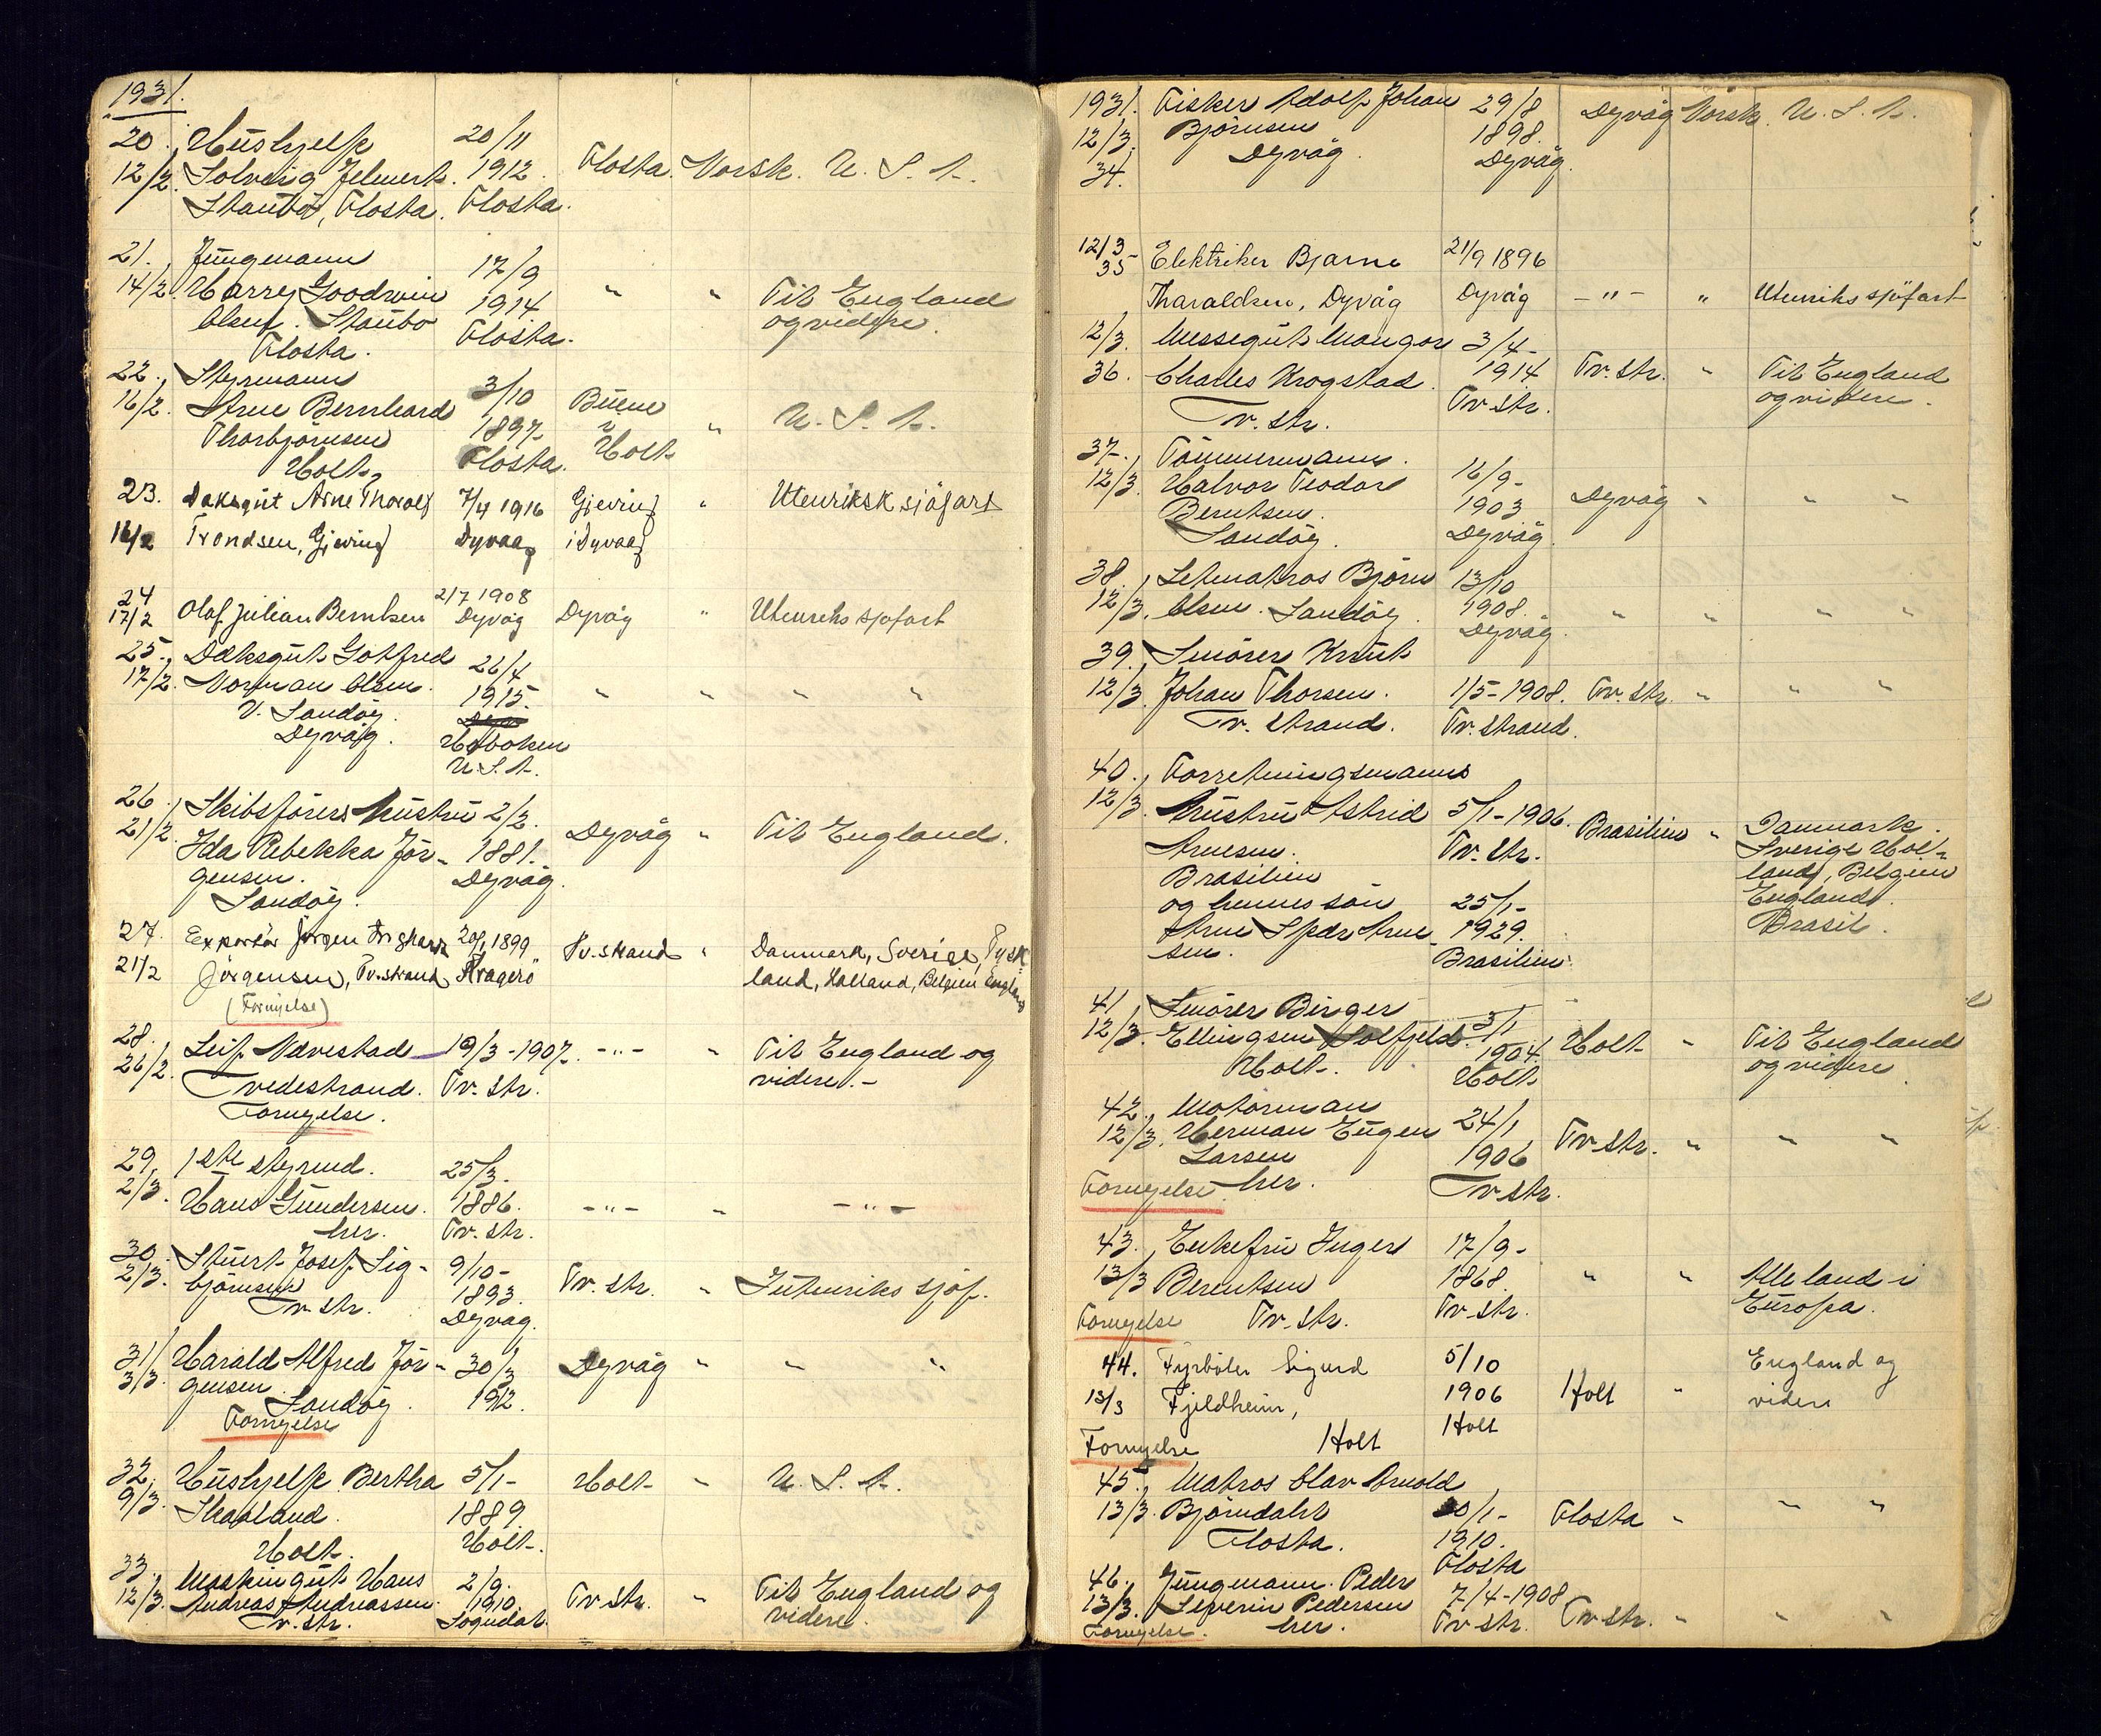 1931.
20. Hushjelp 20/11
12/2. Solveig Jelmert. 1912. Flosta. Norsk. U. S. A.
Staubø, Flosta. Flosta.
21. Jungmann 17/9
14/2. Harry Goodwin 1914 " " Til England
Olsen. Staubø Flosta. og videre.
Flosta.
22. Styrmann 3/10 Buene
16/2. Arne Bernhard 1897 i " U. S. A.
Thorbjörnsen Flosta. Holt
Holt.
23. Daksgut Arne Thorolf 7/4 1916 Gjeving " Utenriksk sjöfart
16/2 Trondsen, Gjeving Dyvaag i Dyvaag
24 21/7 1908
17/2 Olaf Julian Berntsen Dyvåg Dyvåg " Utenriks sjøfart
25. Dæksgut Gotfred 26/4
17/2. Norman Olsen. 1915. " " " "
V. Sandöy.
Dyvåg. Hoboken
U.S.A.
26. Skibsförers hustru 2/2.
21/2. Ida Rebekka Jör- 1881. Dyvåg " Til England.
gensen. Dyvåg.
Sandöy.
27. Exportör Jörgen 20/1 1899 Tv.strand " Danmark, Sverige, Tysk-
21/2 Jörgensen, Tv.strand Kragerö land, Holland, Belgien England
(Fornyelse)
28. Leif Nævestad 19/3-1907. -"- " Til England og
26/2. Tvedestrand. Tv. str. videre.-
Fornyelse.
29. 1ste styrmd. 25/3.
2/3. Hans Gundersen. 1886. -"- " -"-
her. Tv. str.
30. Stuert Josef Sig- 9/10-
2/3. björnsen 1893. Tv. str. " Iutenriks sjöf.
Tv. str. Dyvåg.
31/ Harald Alfred Jör- 30/3 Dyvåg " " "
3/3. gensen. 1912.
Sandöy.
Fornyelse
32. Hushjelp Bertha 5/1- Holt " U. S. A.
9/3. Skapland. 1889.
Holt. Holt.
33. Maskingut Hans 2/9.
12/3. Andreas Andreassen. 1910. Tv str. " Til England og
Tv. str. Sogndal. videre.
1931. Fisker Adolf Johan 29/8 Dyvåg Norsk. U. S. A.
12/3. Björnsen 1898.
34. Dyvåg. Dyvåg.
12/3 Elektriker Bjarne 21/9 1896
35 Tharaldsen, Dyvåg Dyvåg -"- " Utenriks sjöfart
12/3. Messegut Mangor 3/4-
36. Charles Krogstad. 1914 Tv. str. " Til England
Tv. str. Tv str. og videre.
37. Tömmermann. 16/9-
12/3. Halvor Teodor 1903 Dyvåg " " "
Berntsen. Dyvåg.
Sandöy.
38. Letmatros Björn 13/10
12/3. Olsen. Sandöy. 1908. " " " "
Dyvåg.
39. Smörer Knut
12/3. Johan Thorsen. 1/5-1908. Tv. str. " " "
Tv. strand. Tv. strand.
40. Forretningsmanns
12/3. hustru Astrid 5/1-1906. Brasilien " Danmark.
Arnesen. Tv. str. Sverige Hol-
Brasilien land, Belgien
og hennes sön 25/1- England.
Arne Arne- 1929. Brasil.
sen. Brasilien.
41. Smörer Birger 3/1
12/3. Ellingsen Solfjeld. 1904. Holt " Til England
Holt. Holt og videre
42. Motorman 24/1
12/3. Herman Eugen 1906 Tv str. " " "
Larsen Tv str.
Fornyelse. her.
43. Enkefru Inger 17/9-
13/3 Berentsen 1868. " " Alle land i
Fornyelse Tv. str. Tv. str. Europa.
44. Fyrböter Sigurd 5/10 England og
13/3 Fjeldheim, 1906 Holt " videre
Fornyelse Holt Holt
45. Matros Olav Arnold
13/3. Björndalt 20/1- Flosta " " "
Flosta. 1910.
Flosta
46. Jungmann. Peder 7/4-1908
13/3. Severin Pedersen Tv str. Tv str. " " "
Fornyelse. her.